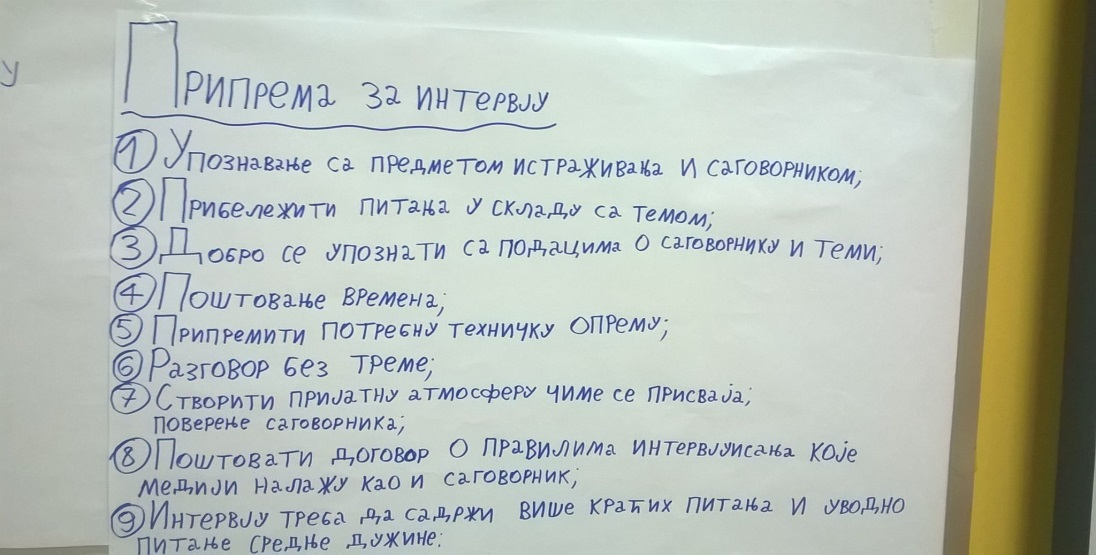 у
Припрема за интервју
1 Упознавање са предметом истраживања и саговорником;
2 Прибележити питања у складу са темом;
3 Добро се упознати са подацима о саговорнику и теми;
4 Поштовање времена;
5 Припремити потребну техничку опрему;
6 Разговор без треме;
7 Створити пријатну атмосферу чиме се присваја;
поверење саговорника;
8 Поштовати договор о правилима интервјуисања које
медији налажу као и саговорник;
9 Интервју треба да садржи више краћих питања и уводно
питање средње дужине.